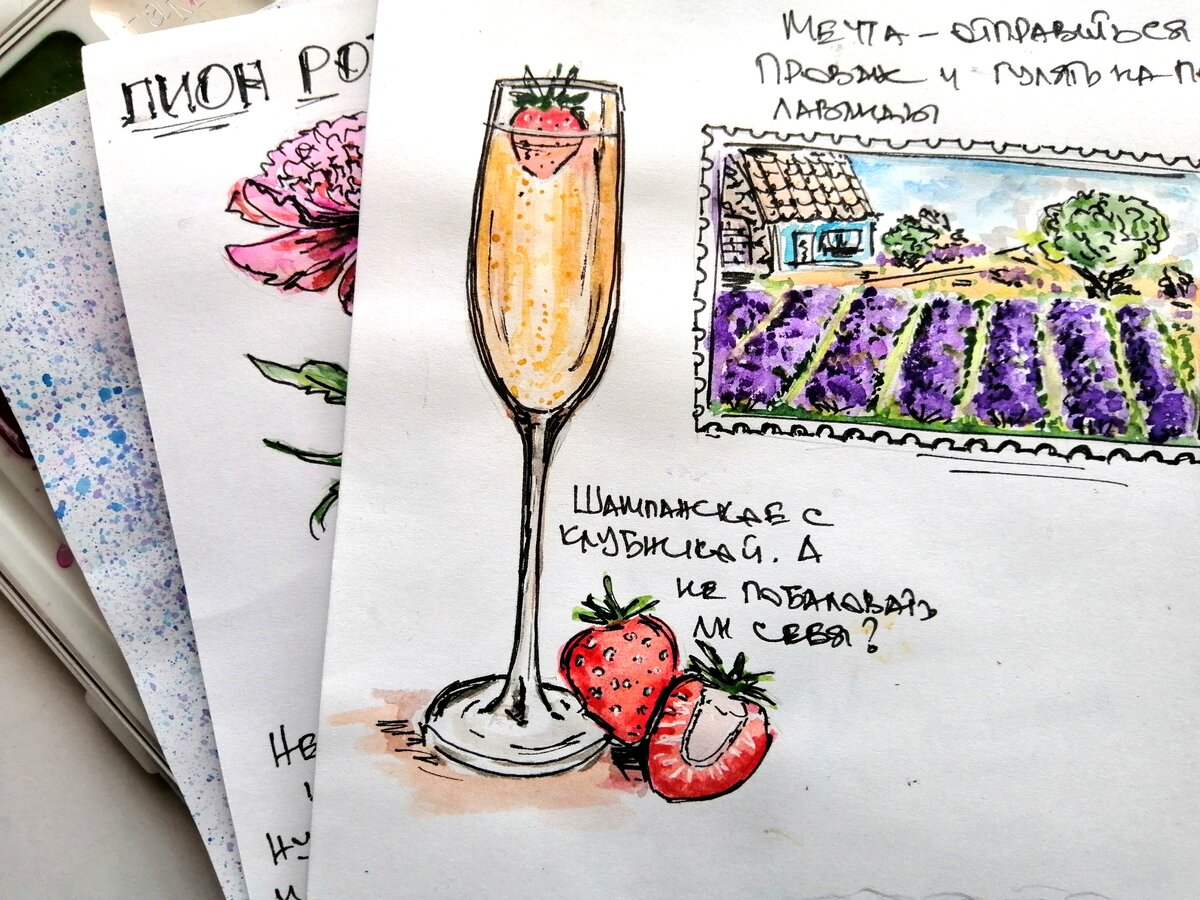 ПИОН РО
МЕЧТА - ОТПРАВИТЬСЯ
ПРОВАНС И ГУЛЯТЬ НА П
ЛАВАНДЫ
ШАМПАНСКОЕ С
КЛУБНИКОЙ. А
НЕ ПОБАЛОВАТЬ
ЛИ СЕБЯ?
НЕ
НУ
И